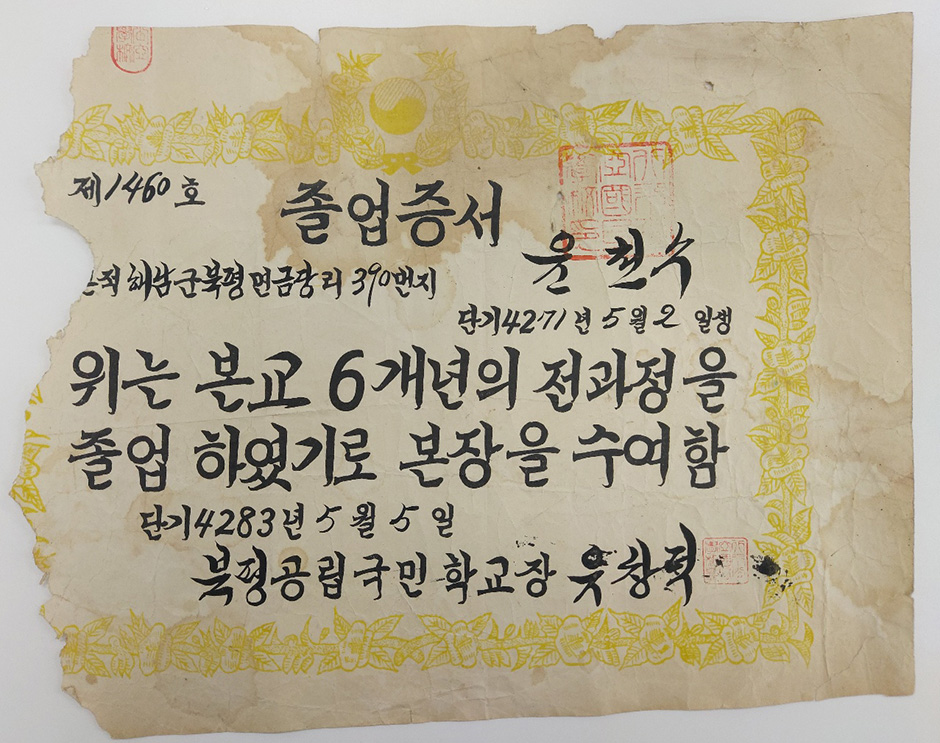 제1460호
졸업증서
본적 해남군북평면금장리 390번지
윤천수
단기4271년 5월 2일생
위는 본교 6개년의 전과정을
졸업 하였기로 본장을 수여함
단기4283년 5월 5일
북평공립국민학교장 윳창덕